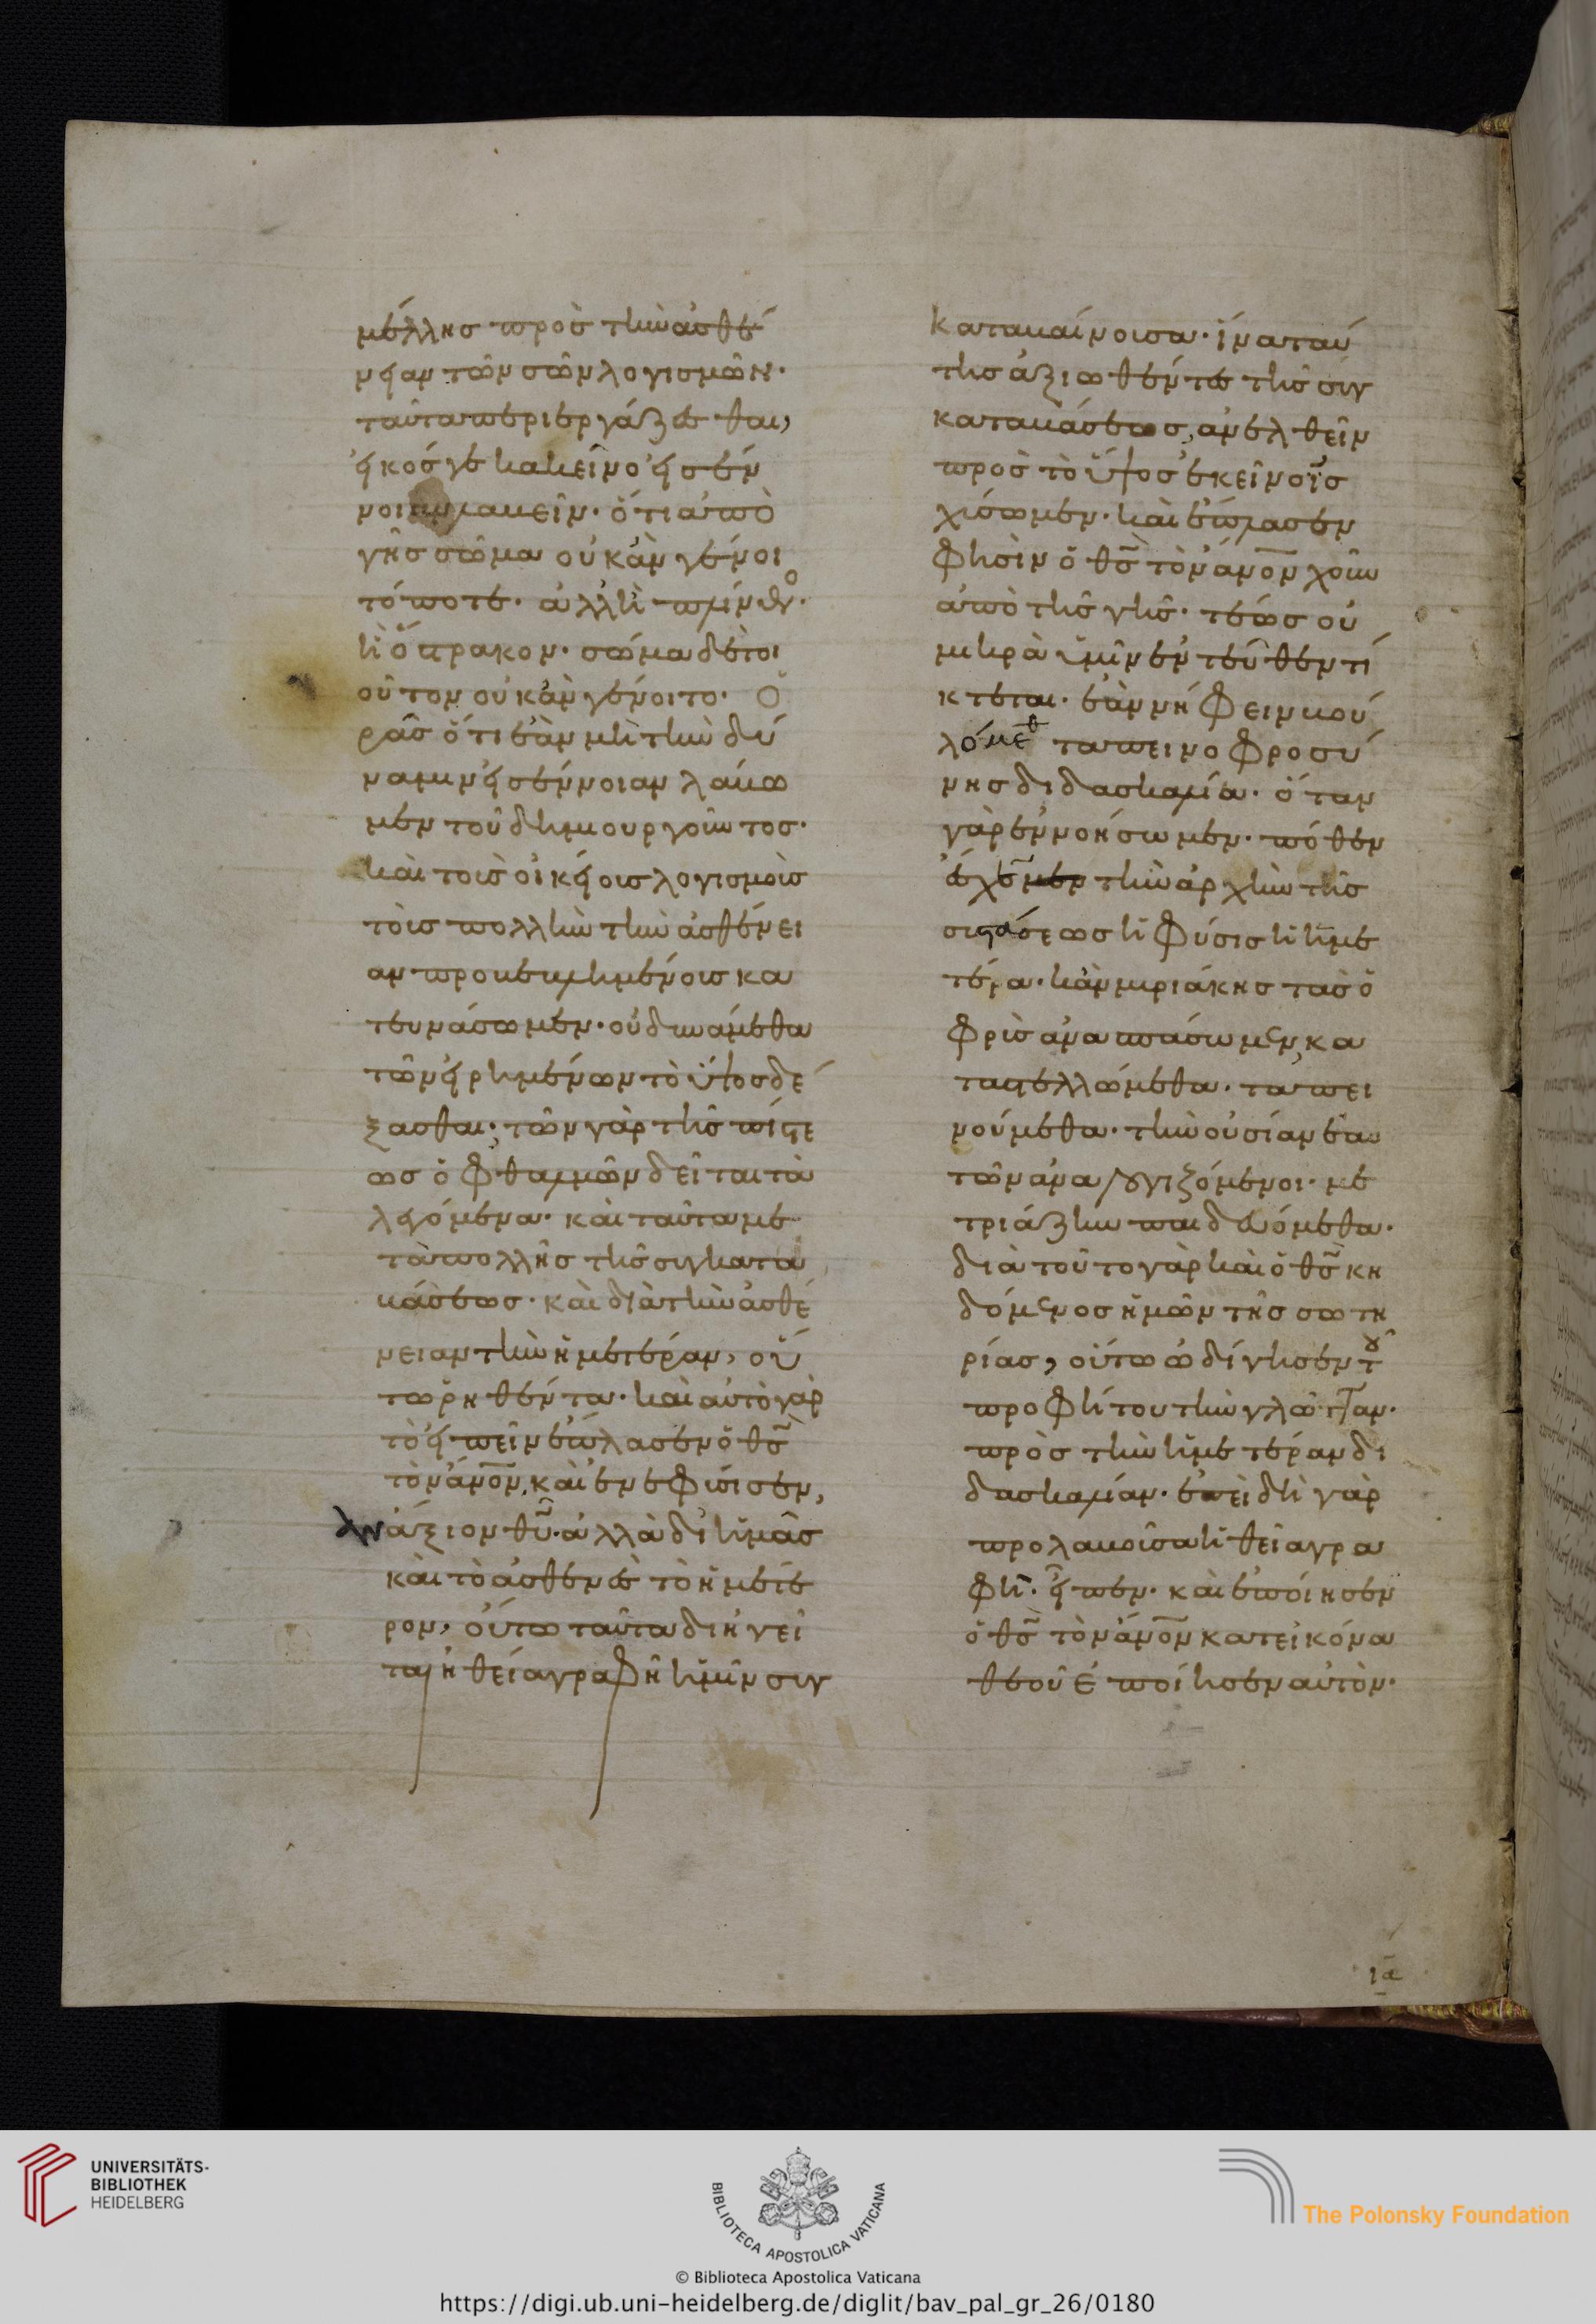 μέλλης πρὸς τὴν ἀσθέ
νειαν τῶν σῶν λογισμῶν·
ταῦτα περιεργάζεσθαι,
εἰκός γε κακεῖνο εἰς ἔν
νοιαν λαβεῖν· ὅτι ἀπὸ
γῆς σῶμα οὐκ ἂν γένοι
τό ποτε· ἀλλ' ἢ πλίνθος·
ἢ ὄστρακον· σῶμα δὲ τοι
οῦτον οὐκ ἂν γένοιτο· Ὁ
ρᾶς ὅτι ἐὰν μὴ τὴν δύ
ναμιν εἰς ἔννοιαν λάβω
μεν τοῦ δημιουργοῦντος·
καὶ τοὺς οἰκείους λογισμοὺς
τοὺς πολλὴν τὴν ἀσθένει
αν προβεβλημένους κα
τευνάσωμεν· οὐ δυνάμεθα
τῶν εἰρημένων τὸ ὕψος δέ
ξασθαι· τῶν γὰρ τῆς πίστε
ως ὀφθαλμῶν δεῖται τὰ
λεγόμενα· καὶ ταῦτα με
τὰ πολλῆς τῆς συγκατα
βάσεως· καὶ διὰ τὴν ἀσθέ
νειαν τὴν ἡμετέραν, οὕ
τω ῥηθέντα· καὶ αὐτὸ γὰρ
τὸ εἰπεῖν ἔπλασεν ὁ θς
τὸν ἄνον, καὶ ἐνεφύσησεν,
ἀνάξιον θυ· ἀλλὰ δι' ἡμᾶς
καὶ τὸ ἀσθενὲς τὸ ἡμέτε
ρον, οὕτω ταῦτα διηγεῖ
ται ἡ θεία γραφὴ ἡμῖν συγ
καταβαίνουσα· ἵνα ταύ
της ἀξιωθέντες τῆς συγ
καταβάσεως, ἀνελθεῖν
πρὸς τὸ ὕψος ἐκεῖνο ἰσ
χύσωμεν· καὶ ἔπλασεν
φησὶν ὁ θς τὸν ἄνον χοῦν
ἀπὸ τῆς γῆς· τέως οὐ
μικρὰ ὑμῖν ἐντεῦθεν τί
κτεται· ἐὰν νήφειν βου
λόμεθ ταπεινοφροσύ
νης διδασκαλία· ὅταν
γὰρ ἐννοήσωμεν· πόθεν
ἔσχε τὴν ἀρχὴν τῆς
συστάσεως ἡ φύσις ἡ ἡμε
τέρα· κἂν μυριάκις τὰς ὀ
φρῦς ἀνασπάσωμεν, κα
ταστελλώμεθα· ταπει
νούμεθα· τὴν οὐσίαν ἑαυ
τῶν ἀναλογιζόμενοι· με
τριάζειν παιδευόμεθα·
διὰ τοῦτο γὰρ καὶ ὁ θς κη
δόμενος ἡμῶν τῆς σωτη
ρίας, οὕτω ὡδήγησεν τοῦ
προφήτου τὴν γλῶτταν·
πρὸς τὴν ἡμετέραν δι
δασκαλίαν· ἐπειδὴ γὰρ
προλαβοῦσα ἡ θεία γρα
φὴ· εἶπεν· καὶ ἐποίησεν
ὁ θς τὸν ἄνον κατ' εἰκόνα
θεοῦ ἐποίησεν αὐτὸν·
ια
UNIVERSITÄTS-
BIBLIOTHEK
HEIDELBERG
BIBLIOTECA APOSTOLICA VATICANA
The Polonsky Foundation
© Biblioteca Apostolica Vaticana
https://digi.ub.uni-heidelberg.de/diglit/bav_pal_gr_26/0180